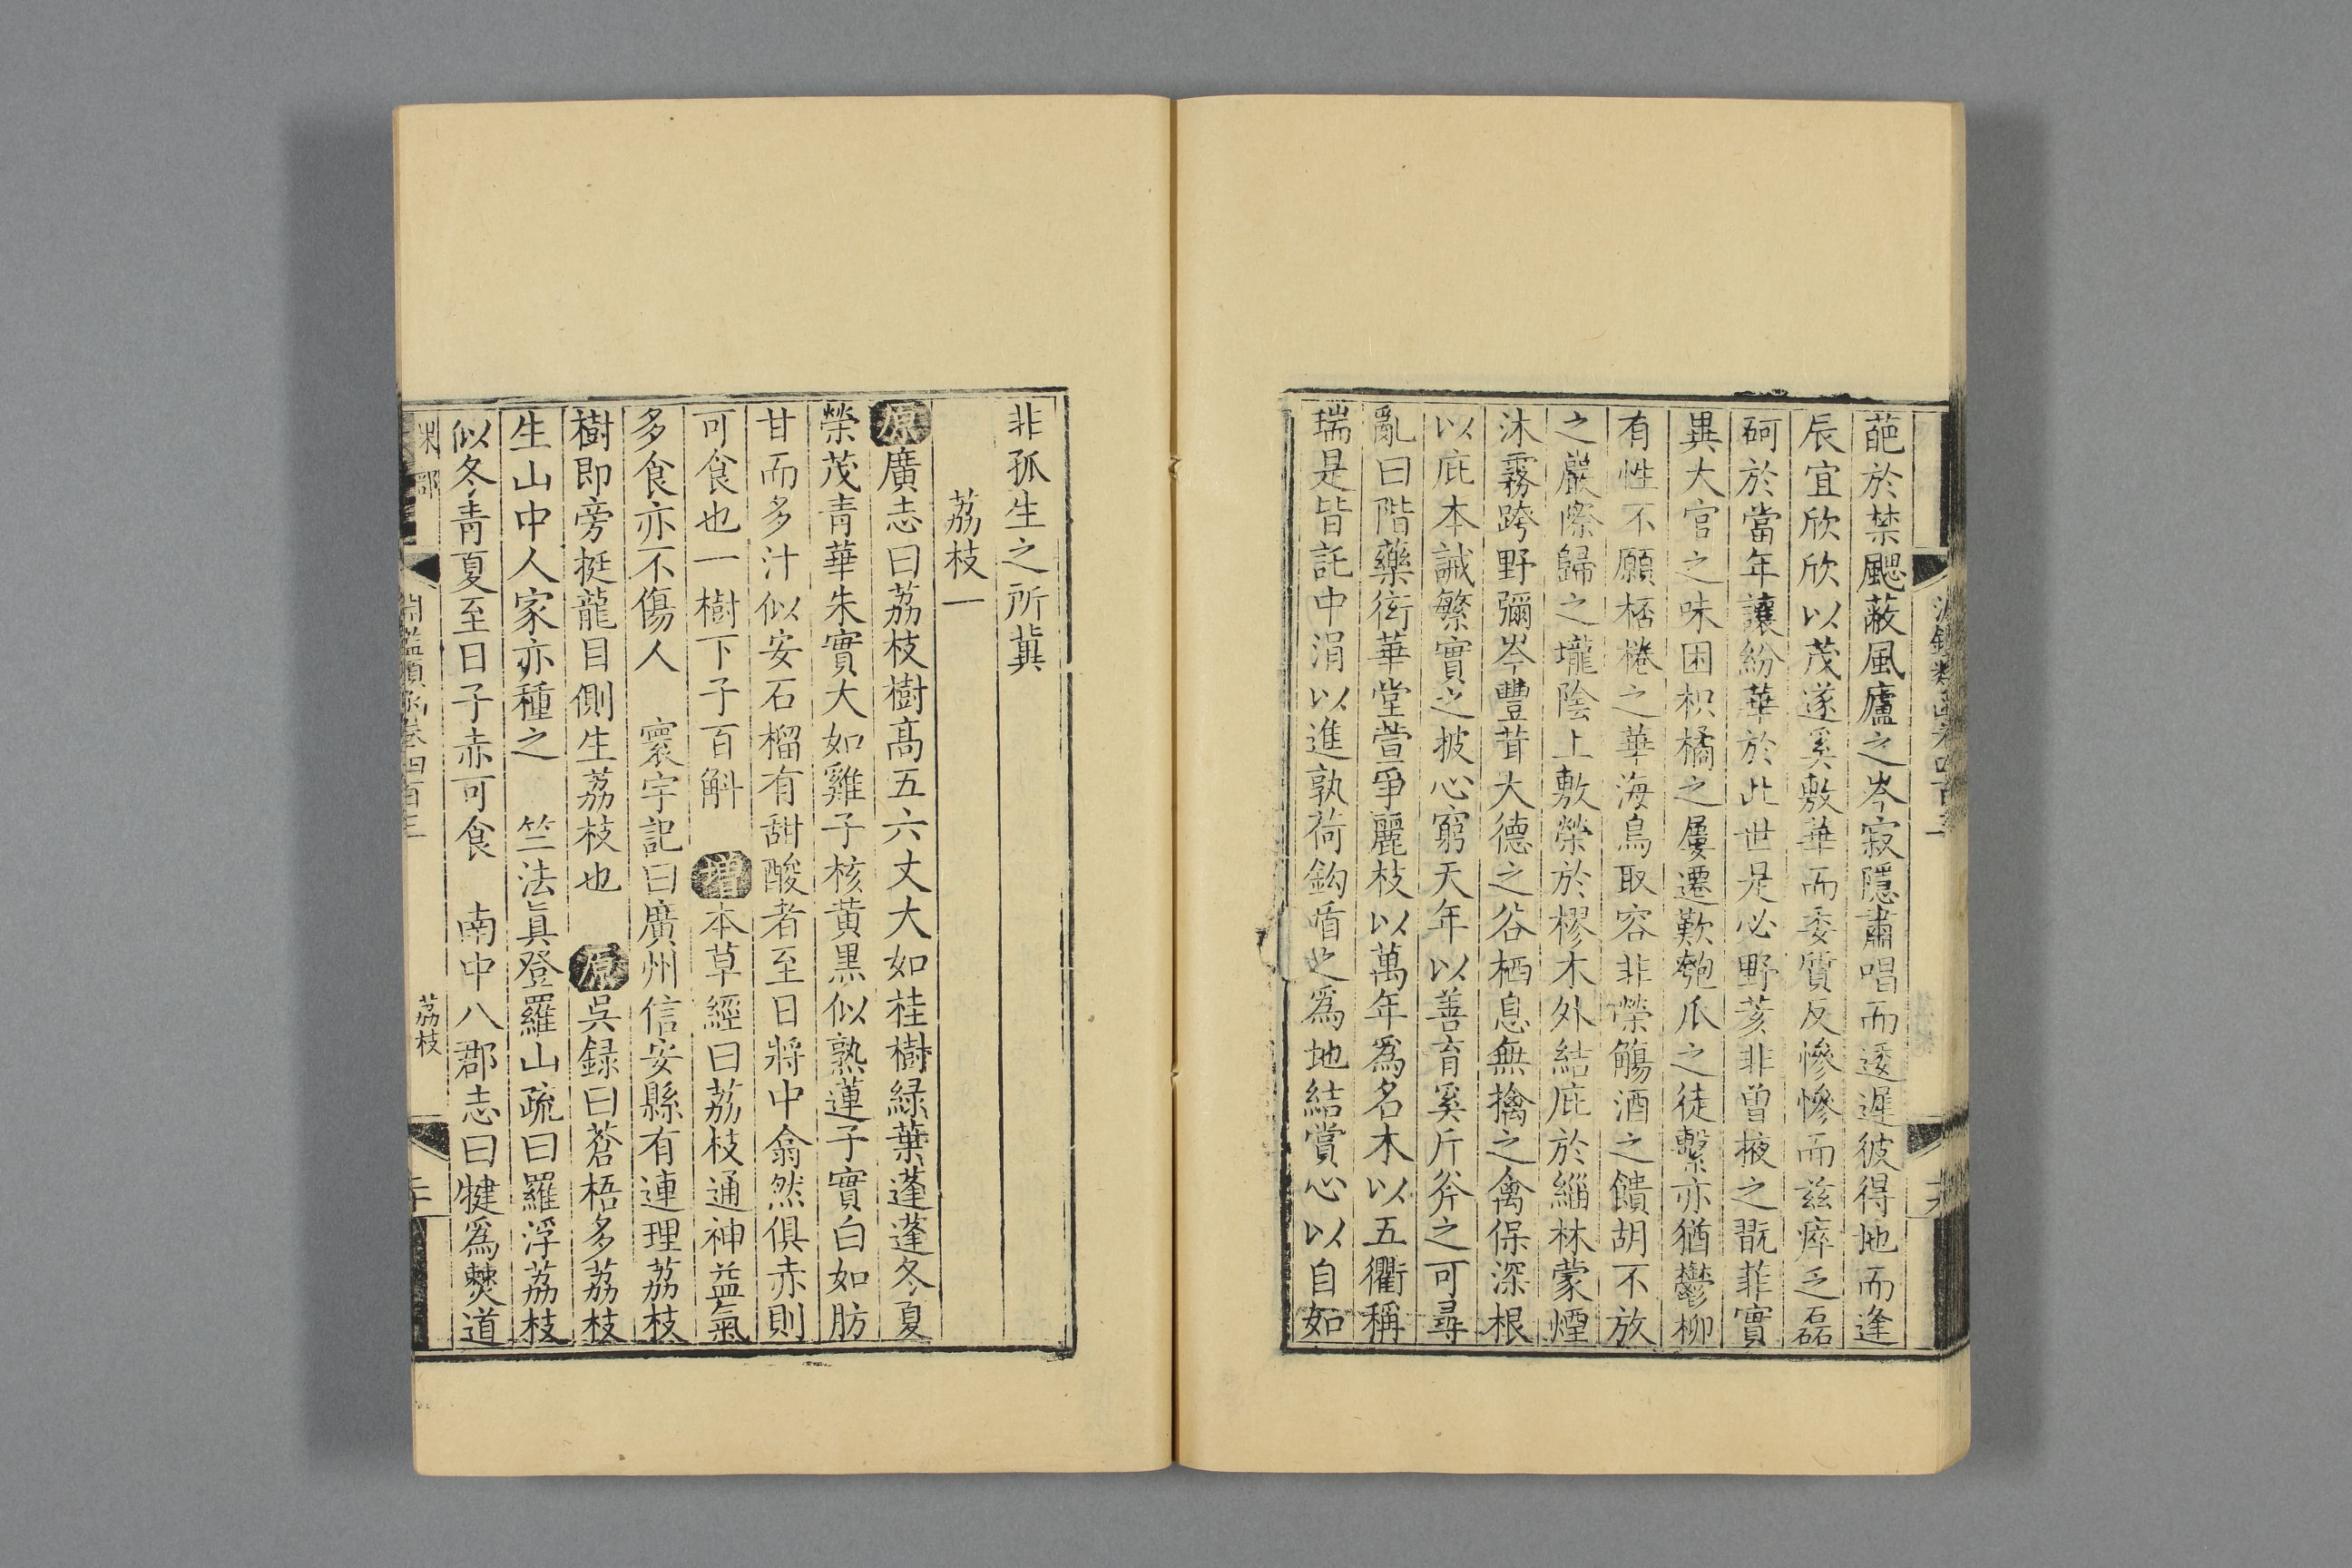 葩於禁颸蔽風廬之岑寂隱肅唱而逶遲彼得地而逢
辰宜欣欣以茂遂奚敷華而委質反慘慘而兹瘁乏磊
砢於當年讓紛華於此世是必野荄非曾掖之翫菲實
異大官之味困枳橘之屢遷歎匏瓜之徒繫亦猶鬱柳
有性不願桮棬之華海鳥取容非榮觴酒之饋胡不放
之巖際歸之壠陰上敷榮於樛木外結庇於緇林蒙煙
沐霧跨野彌岑豐茸大德之谷栖息無擒之禽保深根
以庇本誡繁實之披心窮天年以善育奚斤斧之可尋
亂曰階藥衒華堂萱爭麗枝以萬年爲名木以五衢稱
瑞是皆託中涓以進孰荷鈎盾之爲地結賞心以自如
非孤生之所冀
荔枝一
原廣志曰荔枝樹高五六丈大如桂樹緑葉蓬蓬冬夏
榮茂青華朱實大如雞子核黄黒似熟蓮子實白如肪
甘而多汁似安石榴有甜酸者至日將中翕然俱赤則
可食也一樹下子百斛 增本草經曰荔枝通神益氣
多食亦不傷人 寰宇記曰廣州信安縣有連理荔枝
樹即旁挺龍目側生荔枝也 原吳録曰蒼梧多荔枝
生山中人家亦種之 竺法眞登羅山疏曰羅浮荔枝
似冬青夏至日子赤可食 南中八郡志曰犍爲僰道
果部
荔枝